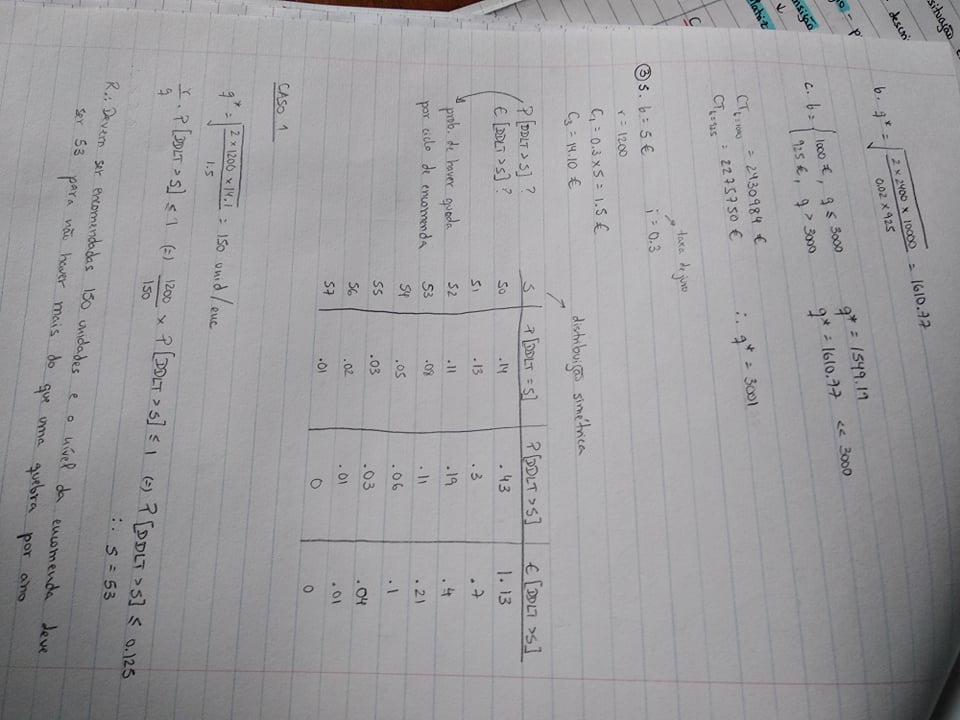 situação
descri
go - p
nsição
↓
Matriz
C
b. q* = √(2 x 2400 x 10000 / 0.02 x 925) = 1610.77
c. b = { 1000 €, q ≤ 3000
925 €, q > 3000
q* = 1549.19
q* = 1610.77 << 3000
CT b=1000 = 2430984 €
CT b=925 = 2275750 €
∴ q* = 3001
taxa de juro
③ 5. b = 5 € i = 0.3
r = 1200
C₁ = 0.3 x 5 = 1.5 €
C₃ = 14.10 €
distribuição simétrica
P[DDLT > S] ?
E[DDLT > S] ?
prob. de haver queda
por ciclo de encomenda
S P[DDLT = S] P[DDLT > S] E[DDLT > S]
50 .14 .43 1.13
51 .13 .3 .7
52 .11 .19 .4
53 .08 .11 .21
54 .05 .06 .1
55 .03 .03 .04
56 .02 .01 .01
57 .01 0 0
CASO 1
q* = √(2 x 1200 x 14.1 / 1.5) = 150 unid/enc
r/q . P[DDLT > S] ≤ 1 (=) 1200/150 x P[DDLT > S] ≤ 1 (=) P[DDLT > S] ≤ 0.125
∴ S = 53
R.: Devem ser encomendadas 150 unidades e o nível da encomenda deve
ser 53 para não haver mais do que uma quebra por ano